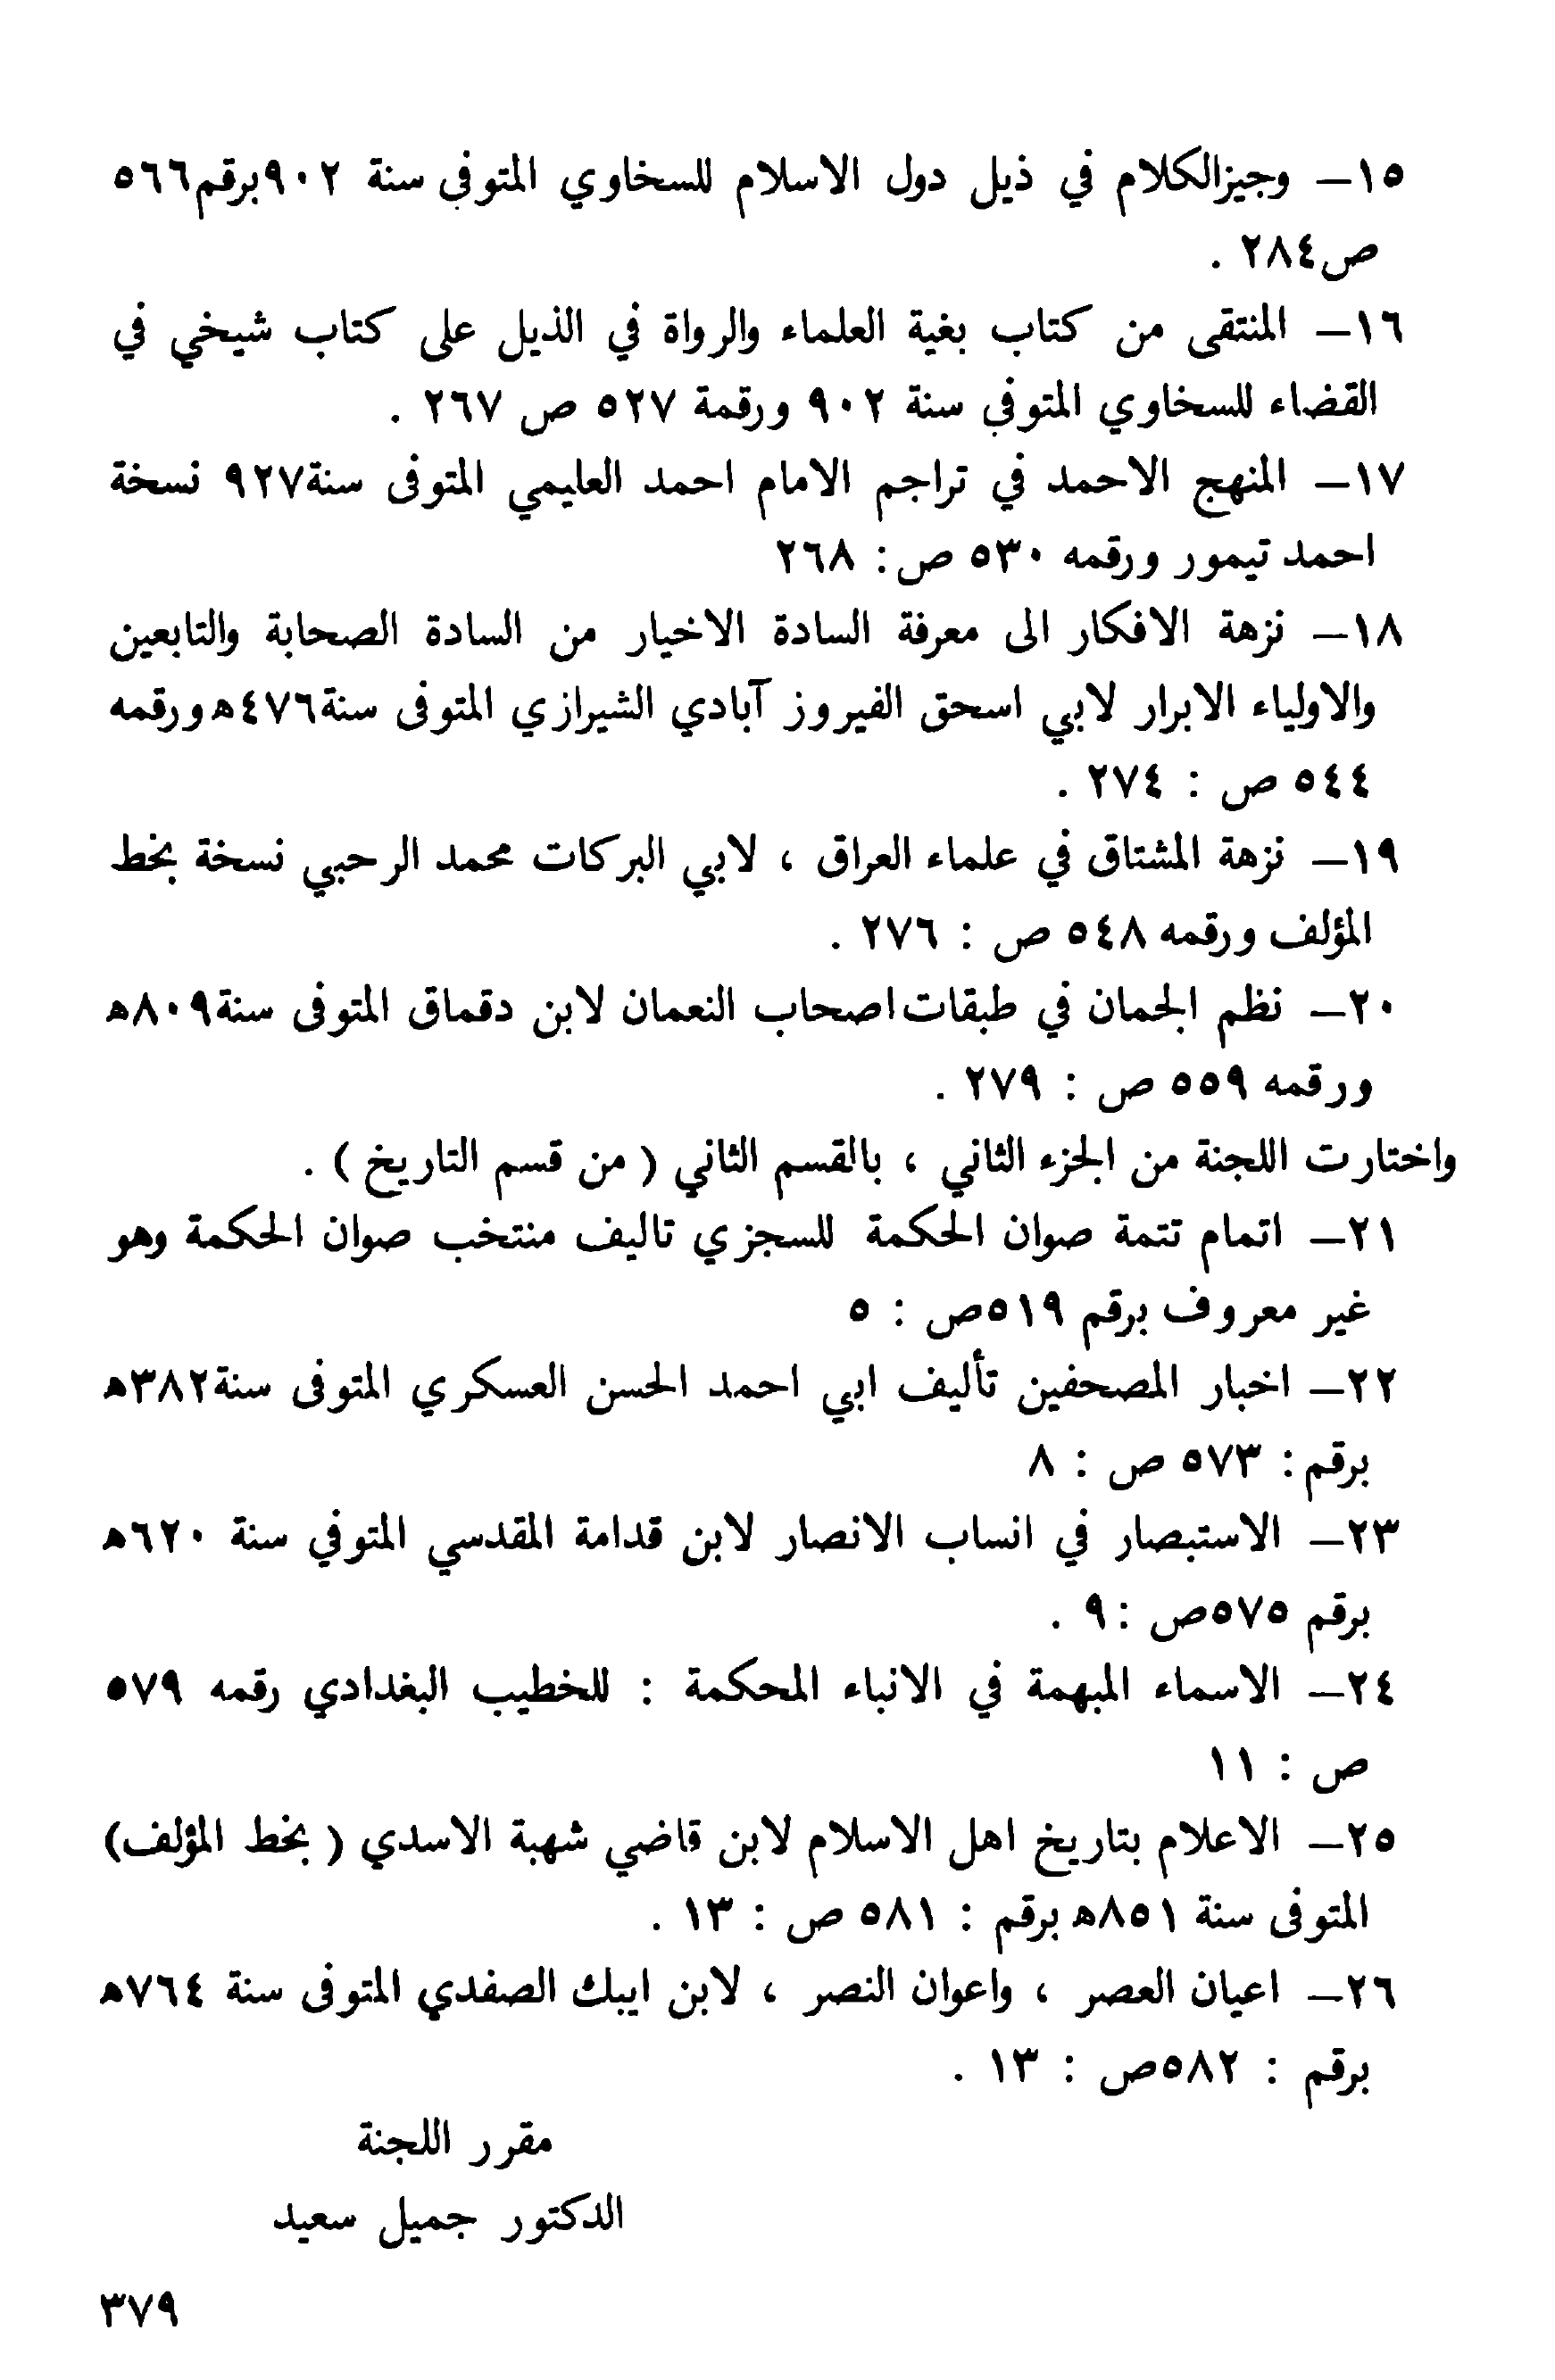 ١٥ـ وجيزالكلام في ذيل دول الاسلام للسخاوي المتوفى سنة ٩٠٢برقم٥٦٦
ص٢٨٤ .
١٦ـ المنتقى من كتاب بغية العلماء والرواة في الذيل على كتاب شيخي في
القضاء للسخاوي المتوفى سنة ٩٠٢ ورقمة ٥٢٧ ص ٢٦٧ .
١٧ـ المنهج الاحمد في تراجم الامام احمد العليمي المتوفى سنة٩٢٧ نسخة
احمد تيمور ورقمه ٥٣٠ ص: ٢٦٨
١٨ـ نزهة الافكار الى معرفة السادة الاخيار من السادة الصحابة والتابعين
والاولياء الابرار لابي اسحق الفيروز آبادي الشيرازي المتوفى سنة٤٧٦هورقمه
٥٤٤ ص : ٢٧٤ .
١٩ـ نزهة المشتاق في علماء العراق ، لابي البركات محمد الرحبي نسخة بخط
المؤلف ورقمه ٥٤٨ ص : ٢٧٦ .
٢٠ـ نظم الجمان في طبقات اصحاب النعمان لابن دقماق المتوفى سنة٨٠٩ه
ورقمه ٥٥٩ ص : ٢٧٩ .
واختارت اللجنة من الجزء الثاني ، بالقسم الثاني ( من قسم التاريخ ) .
٢١ـ اتمام تتمة صوان الحكمة للسجزي تاليف منتخب صوان الحكمة وهو
غير معروف برقم ٥١٩ص : ٥
٢٢ـ اخبار المصحفين تأليف ابي احمد الحسن العسكري المتوفى سنة٣٨٢ه
برقم: ٥٧٣ ص : ٨
٢٣ـ الاستبصار في انساب الانصار لابن قدامة المقدسي المتوفي سنة ٦٢٠ه
برقم ٥٧٥ص :٩ .
٢٤ـ الاسماء المبهمة في الانباء المحكمة : للخطيب البغدادي رقمه ٥٧٩
ص : ١١
٢٥ـ الاعلام بتاريخ اهل الاسلام لابن قاضي شهبة الاسدي ( بخط المؤلف)
المتوفى سنة ٨٥١ه برقم : ٥٨١ ص : ١٣ .
٢٦ـ اعيان العصر ، واعوان النصر ، لابن ايبك الصفدي المتوفى سنة ٧٦٤ه
برقم : ٥٨٢ص : ١٣ .
مقرر اللجنة
الدكتور جميل سعيد
٣٧٩